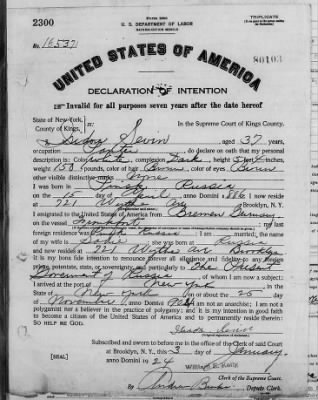 2300
Form 2203
TRIPLICATE
U. S. DEPARTMENT OF LABOR
NATURALIZATION SERVICE
No. 16537
80103
UNITED STATES OF AMERICA
DECLARATION OF INTENTION
Invalid for all purposes seven years after the date hereof
State of New York,
County of Kings, ss:
In the Supreme Court of Kings County.
I, Levin aged 37 years,
occupation , do declare on oath that my personal
description is: Color white, complexion Dark, height 5 feet 4 inches,
weight 153 pounds, color of hair Brown, color of eyes Brown
other visible distinctive marks None
I was born in Pinsk Russia
on the 15 day of April, anno Domini 1886; I now reside
at 721 Wythe Ave Brooklyn, N. Y.
I emigrated to the United States of America from Bremen Germany
on the vessel ; my last
foreign residence was Pinsk Russia; I am married; the name
of my wife is Sadie; she was born at Russia
and now resides at 721 Wythe Ave Brooklyn
It is my bona fide intention to renounce forever all allegiance and fidelity to any foreign
prince, potentate, state, or sovereignty, and particularly to The Present
Government of Russia, of whom I am now a subject;
I arrived at the port of New York, in the
State of New York, on or about the 25 day
of November, anno Domini; I am not an anarchist; I am not a
polygamist nor a believer in the practice of polygamy; and it is my intention in good faith
to become a citizen of the United States of America and to permanently reside therein:
SO HELP ME GOD.
Subscribed and sworn to before me in the office of the Clerk of said Court
at Brooklyn, N. Y., this 3 day of January,
[SEAL]
anno Domini 1924
William E. Kelly
Clerk of the Supreme Court.
By , Deputy Clerk.